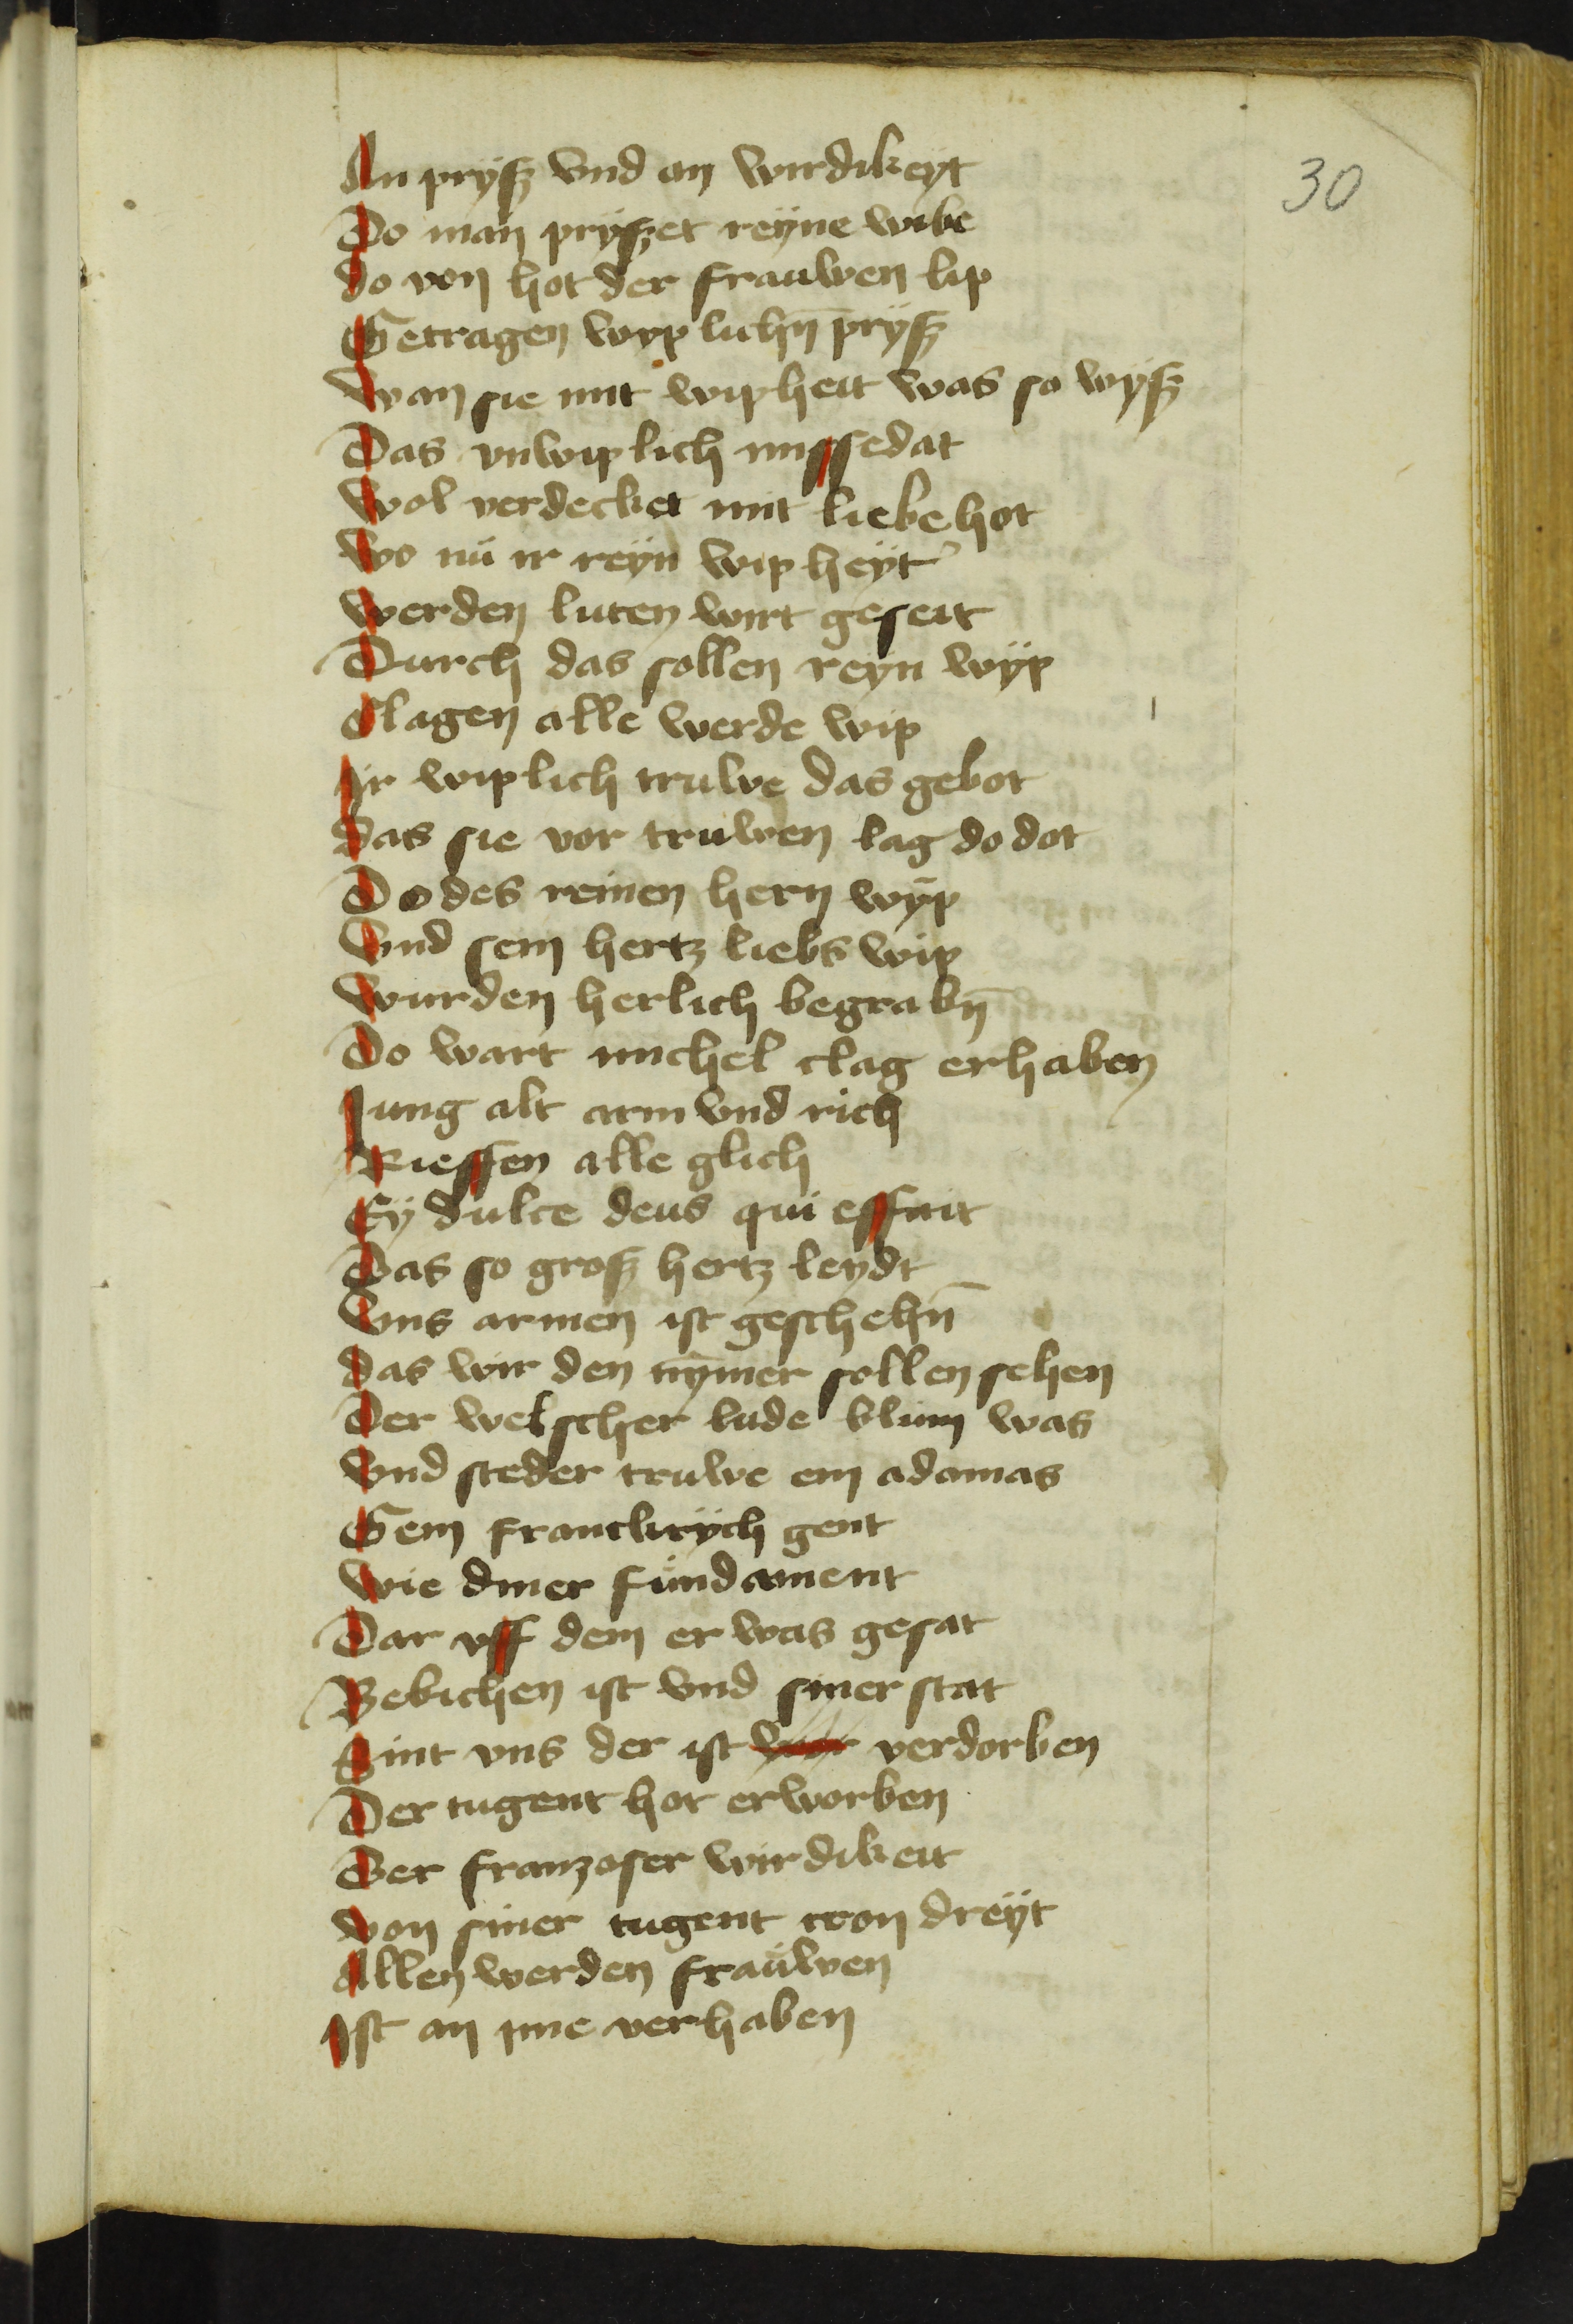 30
An prÿsz vnd an wirdikeyt
Do man prÿszet reyne wibe
do von hot der frauwen lip
Getragen wyplichn̄ prÿsz
wan sie mit wipheit was so wÿsz
Das vnwiplich missedat
wol verdecket mit liebe hot
wo nu ir reyn wipheyt
werden luten wirt geseit
Durch das sollen reyn wÿp
Clagen alle werde wip
Ir wiplich truwe das gebot
das sie vor truwen lag do dot
Do des reinen hern wÿp
Vnd sein hertz liebs wip
wurden herlich begrabn̄
Do wart michel clag erhaben
Jung alt arm vnd rich
Rieffen alle glich
Eÿ dulce deus qui essuit
Das so grosz hertz leydt
Vns armen ist geschehn̄
das wir den nȳmer sollen sehen
Der welscher lude blum was
Vnd steder truwe ein adamas
Gein franckrÿch gent
wie diner fundament
Dar vff dem er was gesat
Bebichen ist vnd siner stat
Sint vns der ist verdorben
Der tugent hot erworben
Der franzoser wirdikeit
von siner tugent cron dreÿt
Allen werden frauwen
Ist an yme verhaben